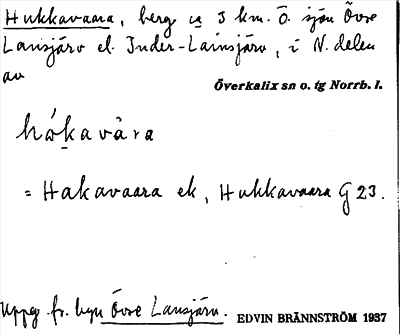 Hukkavaara, berg ca 3 km. Ö. sjön Övre
Lansjärv el. Inder-Lainsjärv, i N. delen
av
Överkalix sn o. tg Norrb. l.
håkavåra
= Hakavaara ek, Hukkavaara G 23.
Uppg. fr. byn Övre Lansjärv.
EDVIN BRÄNNSTRÖM 1937